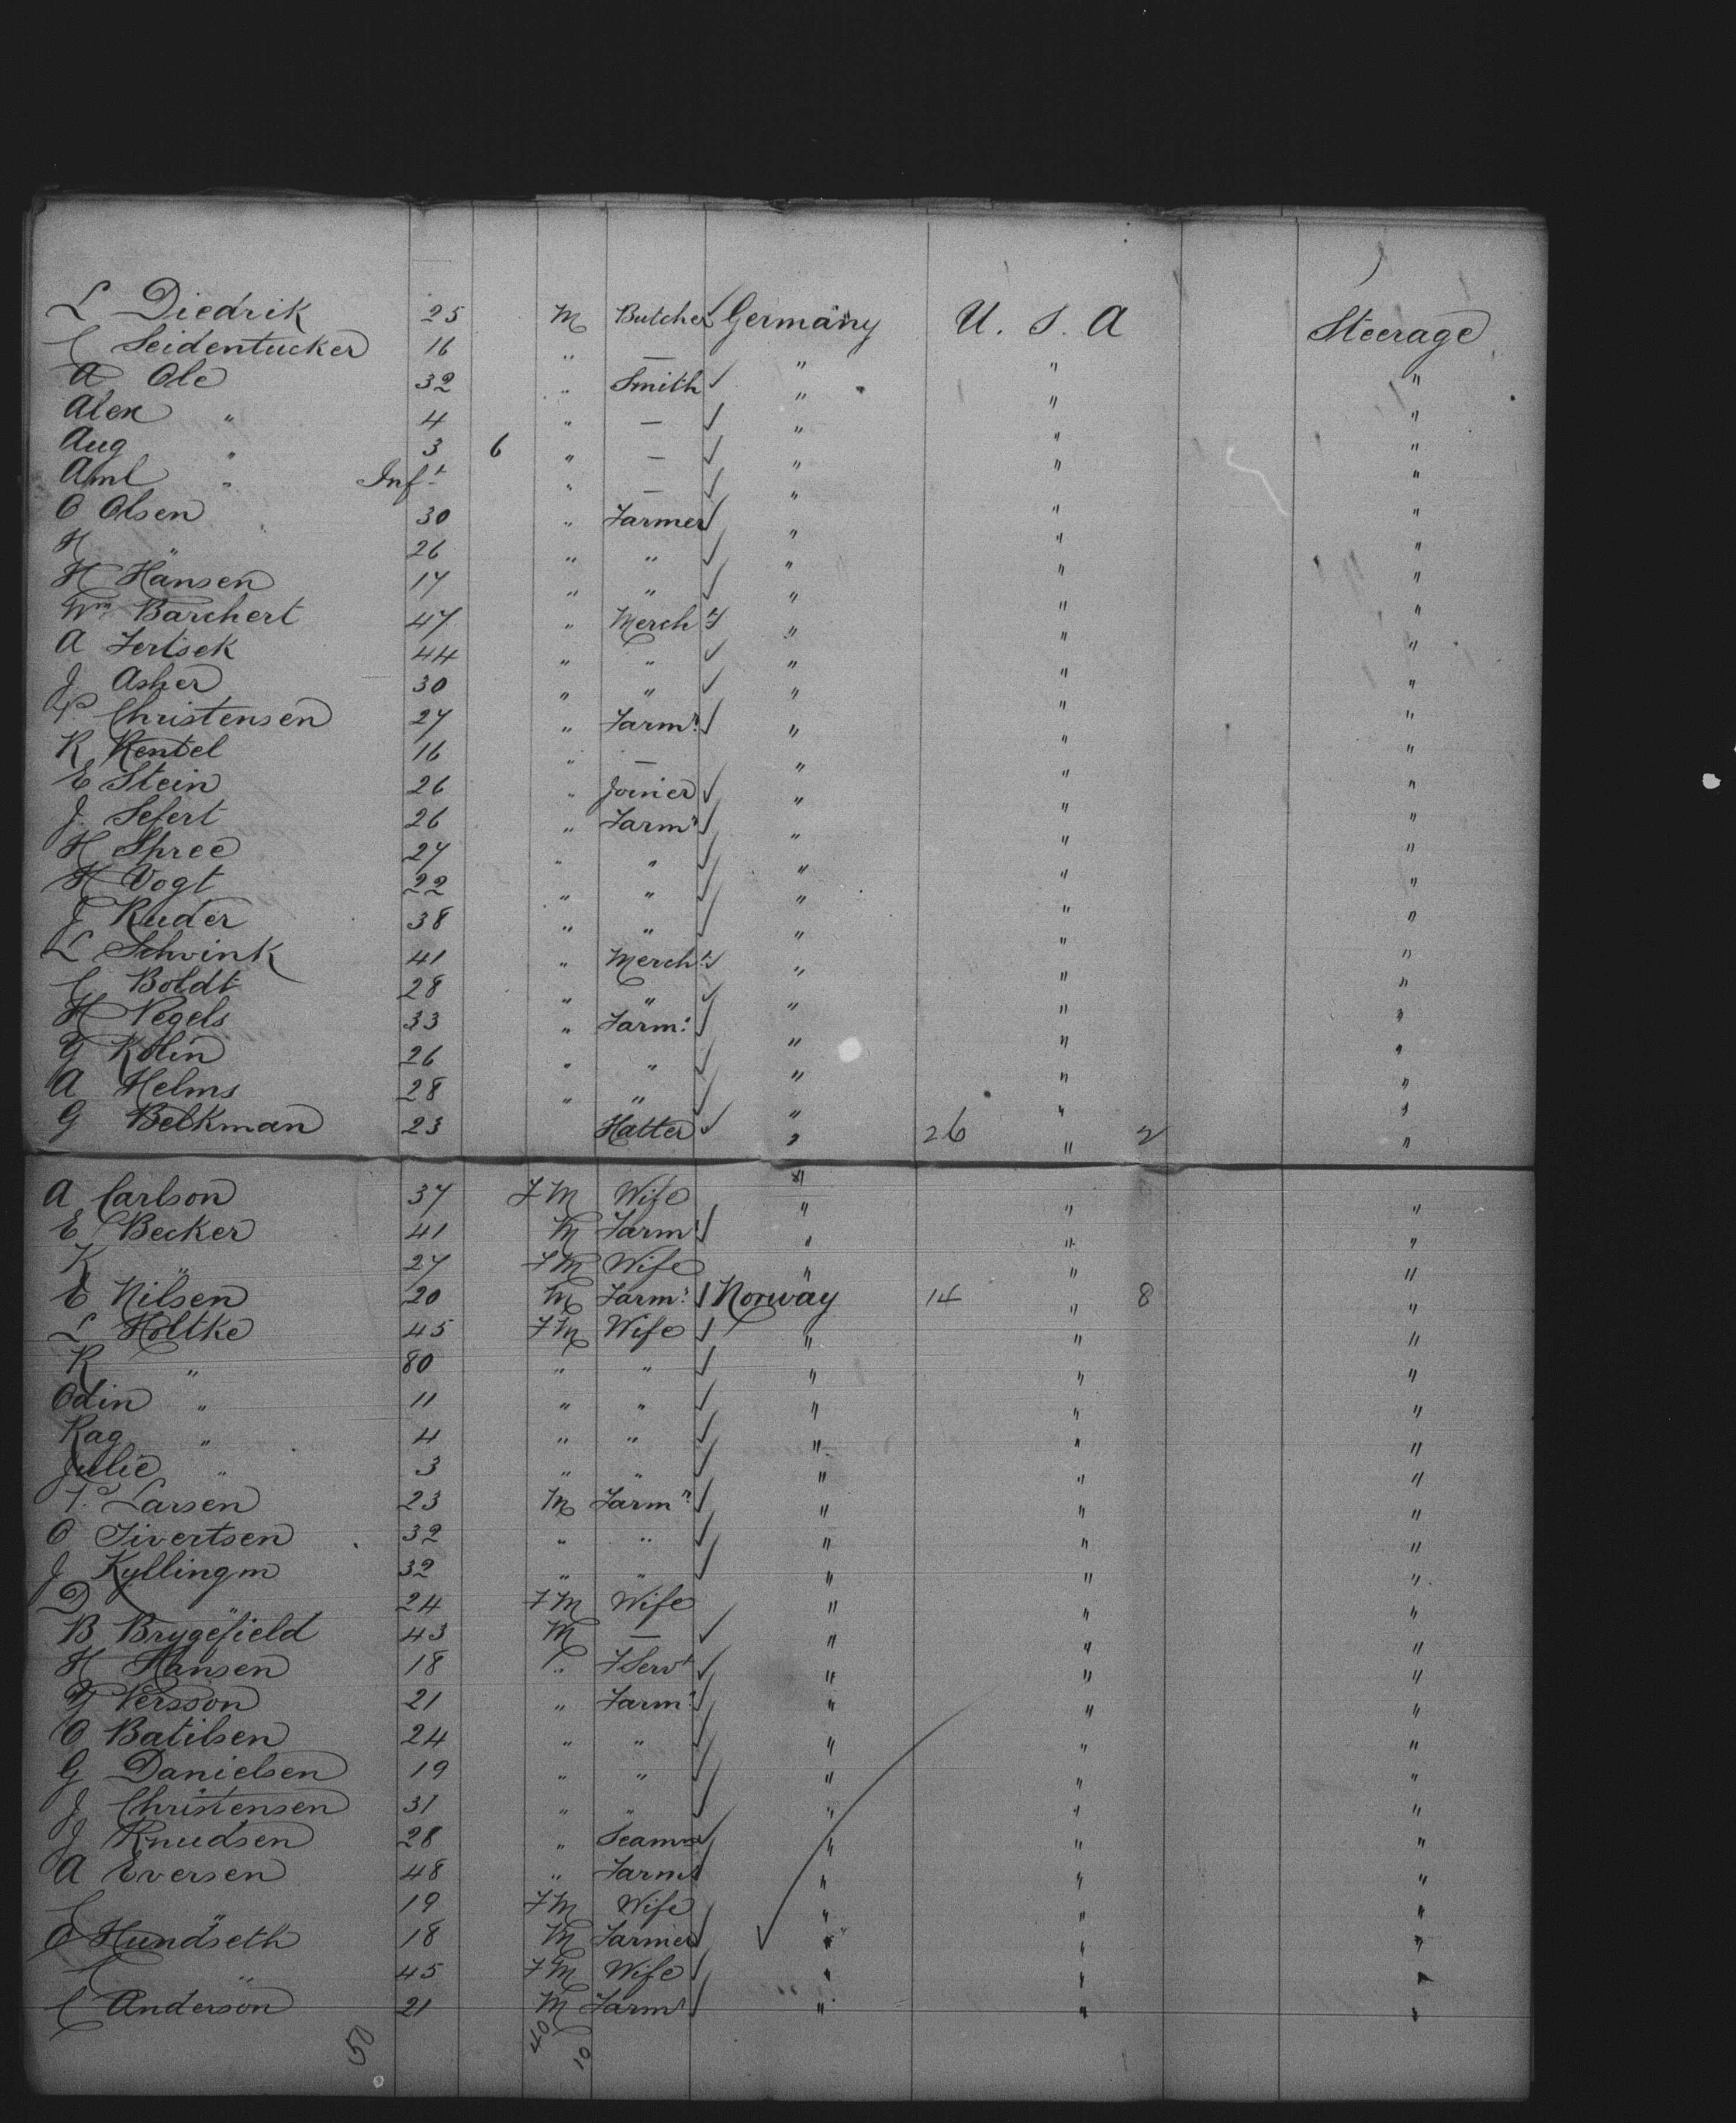 L Diedrik 25 M Butcher ✓ Germany U. S. A Steerage
C Seidentucker 16 " — " " "
A Ole 32 " Smith ✓ " " "
Alex " 4 " — ✓ " " "
Aug " 3 6 " — ✓ " " "
Aml " Inft " — ✓ " " "
O Olsen 30 " Farmer ✓ " " "
H " 26 " " ✓ " " "
H Hansen 17 " " ✓ " " "
Wm Barchert 47 " Merch ✓ " " "
A Jertsek 44 " " ✓ " " "
J Asher 30 " " ✓ " " "
P Christensen 27 " Farmr ✓ " " "
R Rentel 16 " — " " "
E Stein 26 " Joiner ✓ " " "
J. Sefert 26 " Farmr ✓ " " "
H Spree 27 " " ✓ " " "
H Vogt 22 " " ✓ " " "
J Ruder 38 " " ✓ " " "
L Schvink 41 " Mercht ✓ " " "
C Boldt 28 " " ✓ " " "
H Pegels 33 " Farmr ✓ " " "
G Kolin 26 " " ✓ " " "
A Helms 28 " " ✓ " " "
G Belkman 23 Hatter ✓ " 26 " 2 "
A Carlson 37 FM Wife " " "
E Becker 41 M Farmr ✓ " " "
K " 27 FM Wife " " "
E Nilsen 20 M Farmr ✓ Norway 14 " 8 "
L Holtke 45 FM Wife ✓ " " "
R " 80 " " ✓ " " "
Odin " 11 " " ✓ " " "
Rag " 4 " " ✓ " " "
Julie " 3 " " ✓ " " "
P. Larsen 23 M Farmr ✓ " " "
O Sivertsen 32 " " ✓ " " "
J Kyllingm 32 " " ✓ " " "
D " 24 FM Wife " " "
B Brygefield 43 M — ✓ " " "
H Hansen 18 " FServt ✓ " " "
G Persson 21 " Farmr ✓ " " "
O Batilsen 24 " " ✓ " " "
G Danielsen 19 " " ✓ " " "
J Christensen 31 " " ✓ " " "
J Knudsen 28 " Seaman ✓ " " "
A Eversen 48 " Farmr ✓ " " "
C " 19 FM Wife ✓ " " "
O Hundseth 18 M Farmer ✓ " " "
C " 45 FM Wife ✓ " " "
C Anderson 21 M Farmr ✓ " " "
50 40 10